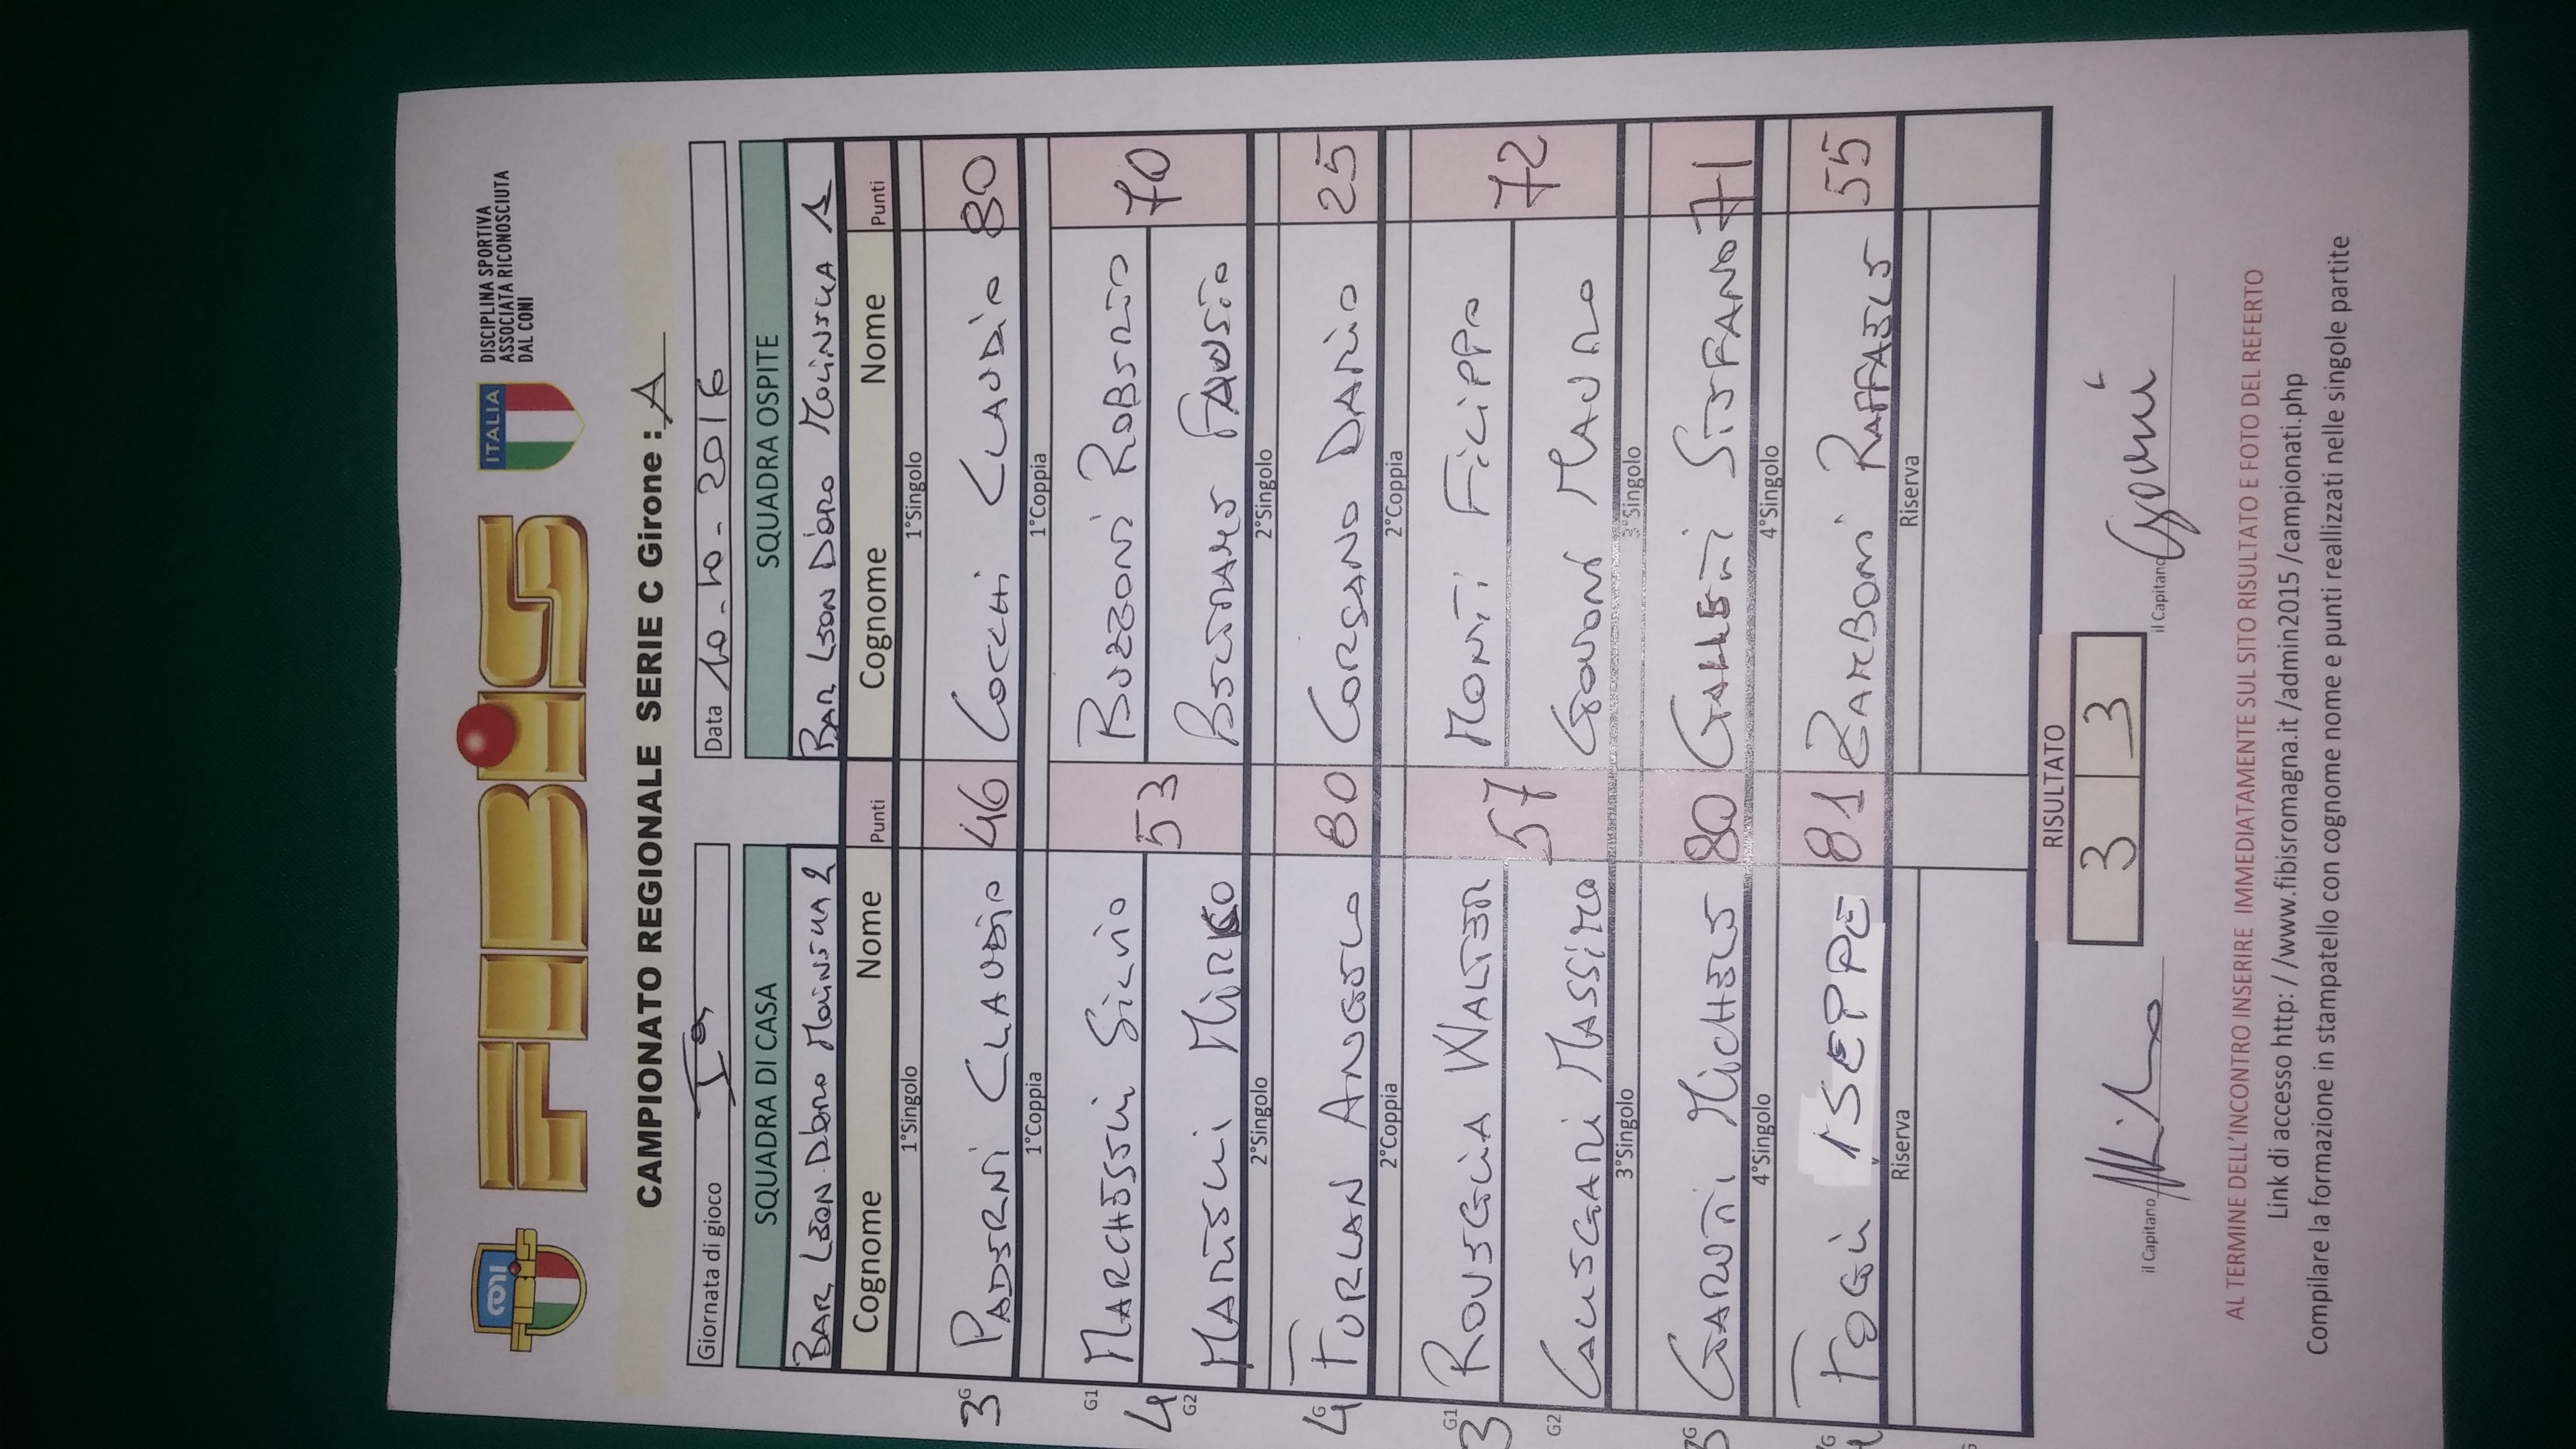 FIBiS
ITALIA
DISCIPLINA SPORTIVA
ASSOCIATA RICONOSCIUTA
DAL CONI
CAMPIONATO REGIONALE SERIE C Girone : A
Giornata di gioco Iª Data 10-10-2016
SQUADRA DI CASA SQUADRA OSPITE
BAR LEON D'ORO MOLINELLA 2 BAR LEON D'ORO MOLINELLA 1
Cognome Nome Punti Cognome Nome Punti
1°Singolo 1°Singolo
3 G PADERNI CLAUDIO 46 COCCHI CLAUDIO 80
1°Coppia 1°Coppia
G1 MARCHESELLI SILVIO BUZZONI ROBERTO
4 53 70
G2 MANTELLI MIRKO FAUSTO
2°Singolo 2°Singolo
4 G FORLAN ANGELO 80 CORSANO DARIO 25
2°Coppia 2°Coppia
G1 ROVEGLIA WALTER MONTI FILIPPO
3 57 72
G2 CALLEGARI MASSIMO GOVONI MAURO
3°Singolo 3°Singolo
G GAROTTI MICHELE 80 GALLETTI STEFANO 71
4°Singolo 4°Singolo
G FOGLI ISEPPE 81 ZAMBONI RAFFAELE 55
Riserva Riserva
RISULTATO
3 3
il Capitano il Capitano Govoni
AL TERMINE DELL'INCONTRO INSERIRE IMMEDIATAMENTE SUL SITO RISULTATO E FOTO DEL REFERTO
Link di accesso http: / /www.fibisromagna.it /admin2015 /campionati.php
Compilare la formazione in stampatello con cognome nome e punti realizzati nelle singole partite